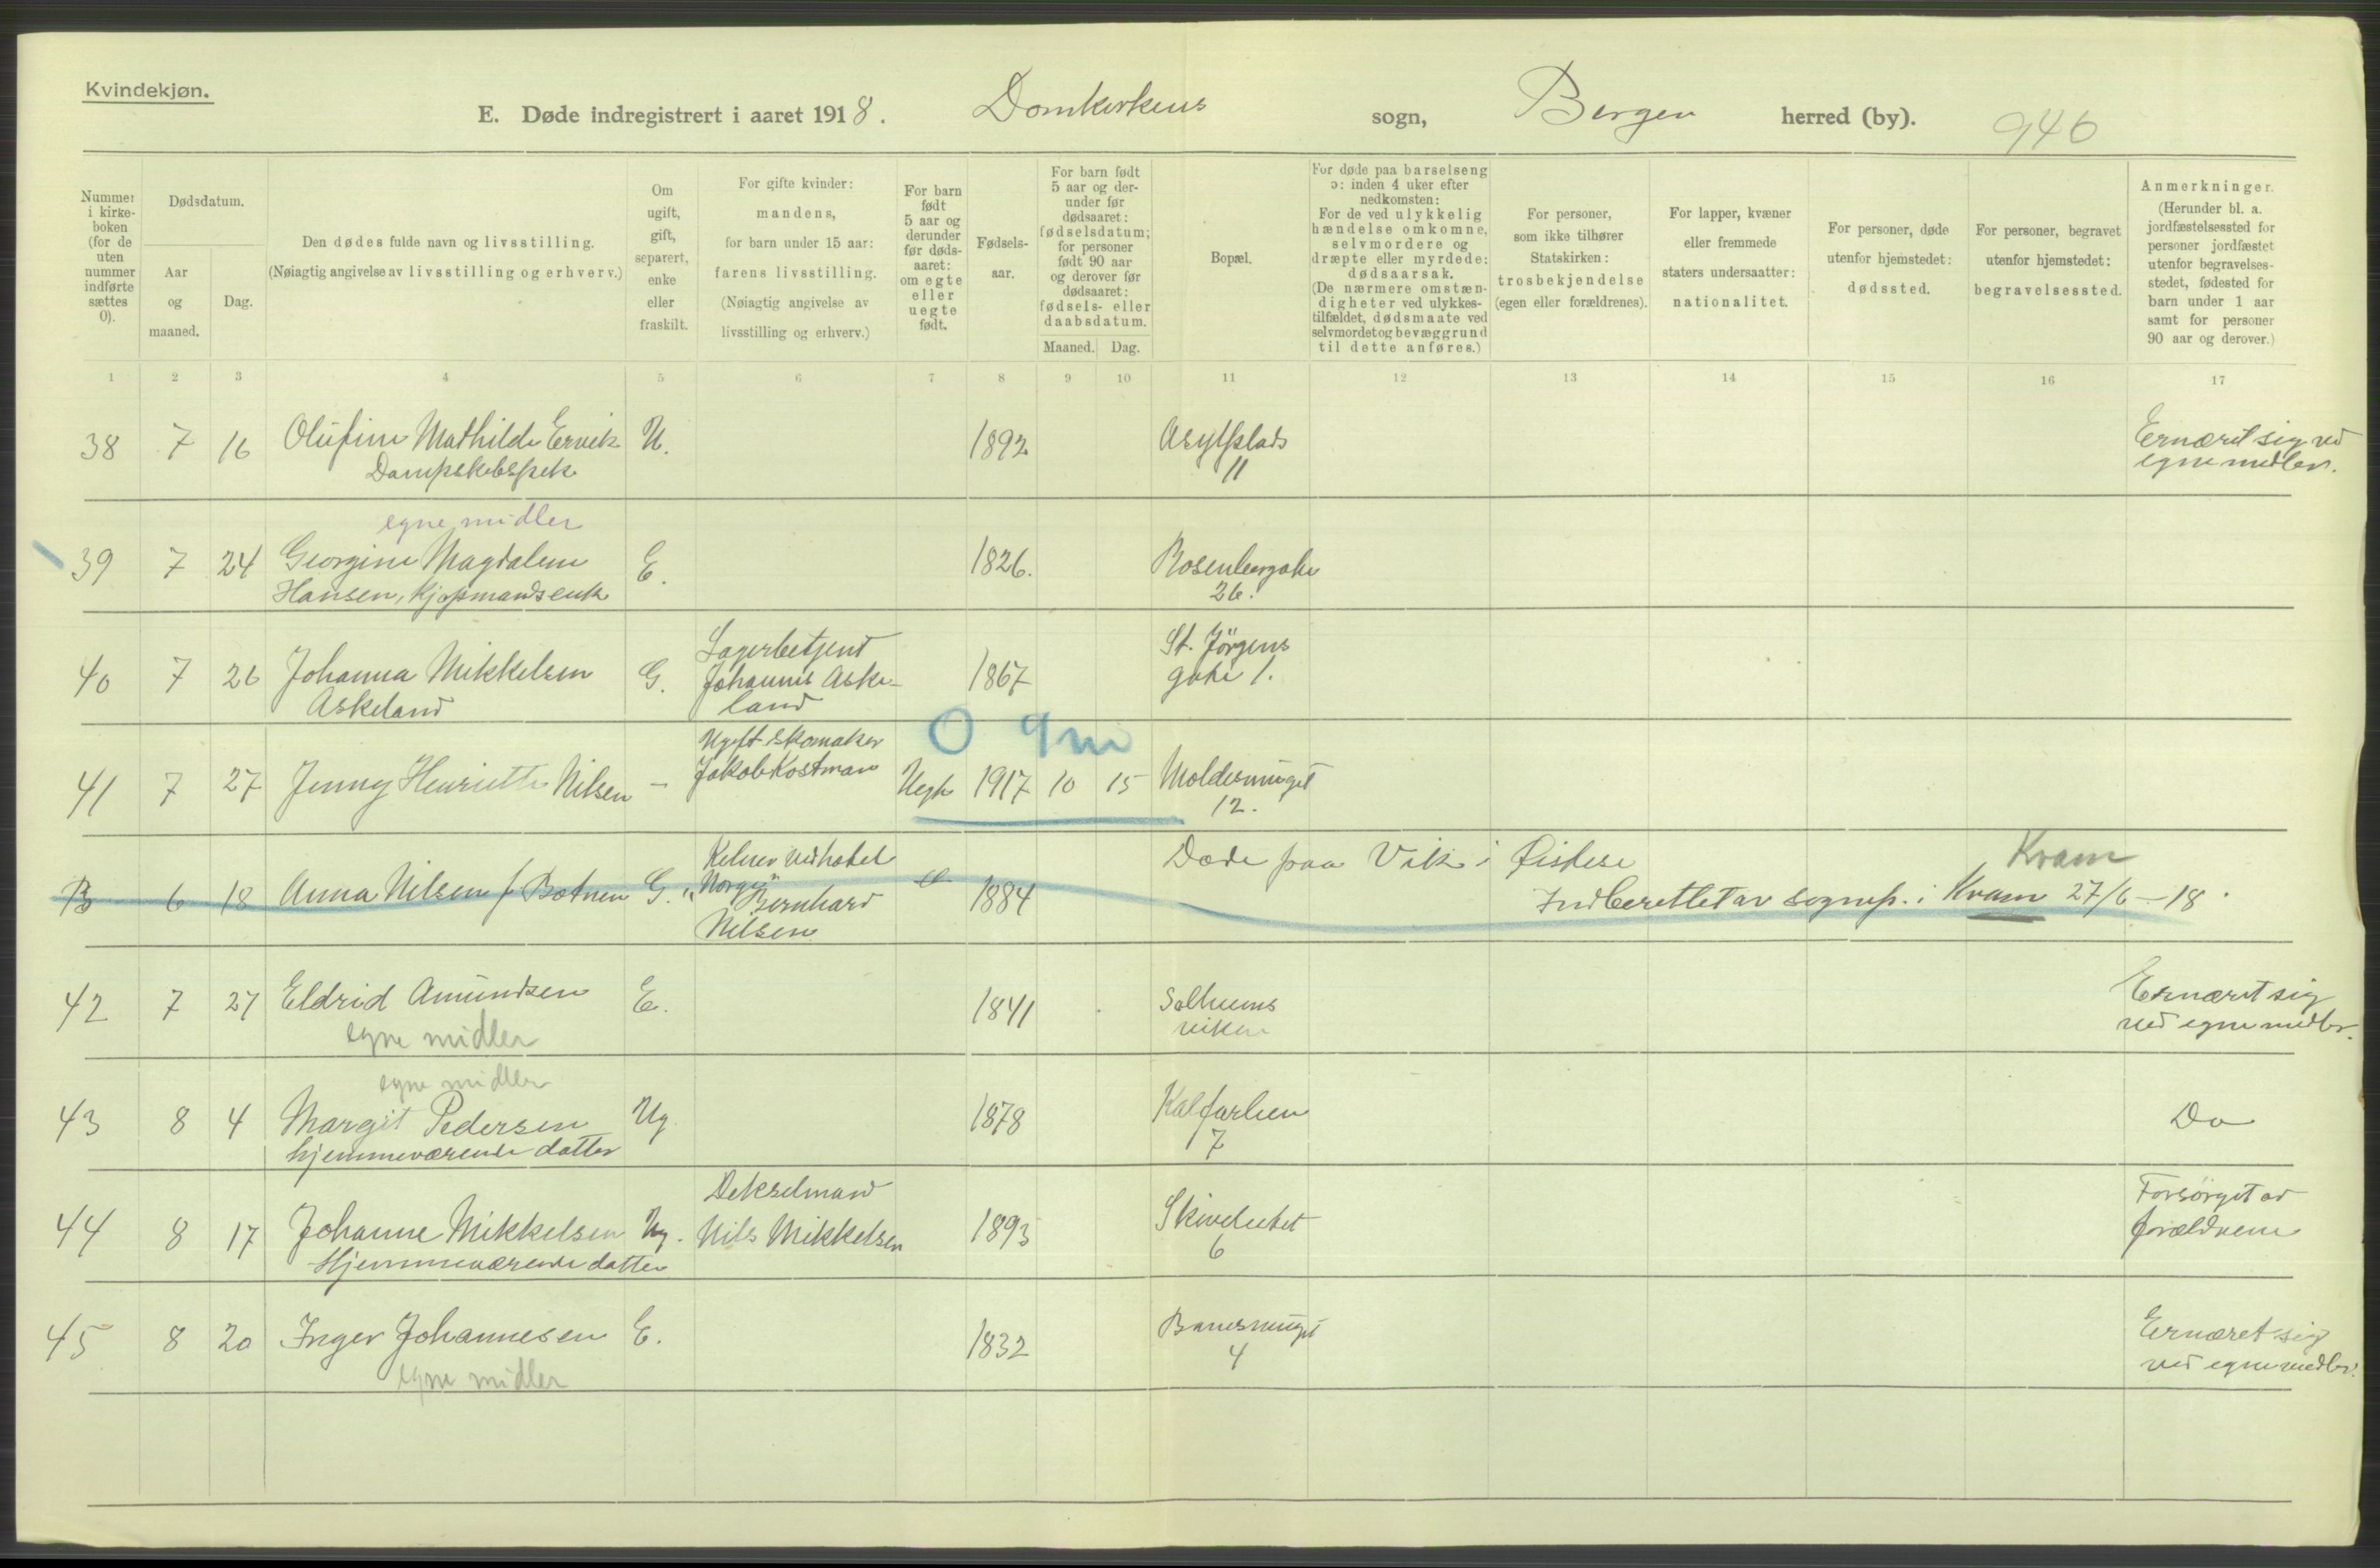 Kvindekjøn.
E. Døde indregistrert i aaret 1918. Domkirkens sogn, Bergen herred (by). 946
Nummer i kirkeboken (for de uten nummer indførte sættes 0).
Dødsdatum.
Aar og maaned.
Dag.
Den dødes fulde navn og livsstilling.
(Nøiagtig angivelse av livsstilling og erhverv.)
Om ugift, gift, separert, enke eller fraskilt.
For gifte kvinder:
mandens,
for barn under 15 aar:
farens livsstilling.
(Nøiagtig angivelse av
livsstilling og erhverv.)
For barn født 5 aar og derunder før dødsaaret: om egte eller uegte født.
Fødselsaar.
For barn født 5 aar og derunder før dødsaaret: fødselsdatum; for personer født 90 aar og derover før dødsaaret: fødsels- eller daabsdatum.
Maaned. Dag.
Bopæl.
For døde paa barselseng ɔ: inden 4 uker efter nedkomsten:
For de ved ulykkelig hændelse omkomne, selvmordere og dræpte eller myrdede: dødsaarsak.
(De nærmere omstændigheter ved ulykkestilfældet, dødsmaate ved selvmordet og bevæggrund til dette anføres.)
For personer, som ikke tilhører Statskirken: trosbekjendelse (egen eller forældrenes).
For lapper, kvæner eller fremmede staters undersaatter: nationalitet.
For personer, døde utenfor hjemstedet: dødssted.
For personer, begravet utenfor hjemstedet: begravelsessted.
Anmerkninger.
(Herunder bl. a. jordfæstelsessted for personer jordfæstet utenfor begravelsesstedet, fødested for barn under 1 aar samt for personer 90 aar og derover.)
1 2 3 4 5 6 7 8 9 10 11 12 13 14 15 16 17
38 7 16 Olufine Mathilde Ervik U. 1892 Asylplads 11 Ernæret sig ved egne midler.
Dampskibs
egne midler
39 7 24 Georgine Magdalene E. 1826. Rosenbergate 26.
Hansen, Kjøpmandsenke
40 7 26 Johanna Mikkelsen G. Lagerbetjent Johannes Askeland 1867 St. Jörgens gate 1.
Askeland
0 9m
41 7 27 Jenny Henriette Nilsen - Ugift skomaker Jakob Kostman Uegte 1917 10 15 Moldersmuget 12.
B 6 18 Anna Nilsen f. Botnen G. Kelner ved hotel "Norge" Bernhard Nilsen 1884 Døde paa Vik i Øistese
Indberettet av sognep. i Kvam 27/6-18.
Kvam
42 7 27 Eldrid Amundsen E. 1841 Solheimsviken Ernæret sig ved egne midler.
egne midler
egne midler
43 8 4 Margit Pedersen Ug 1878 Kalfarlien 7 Do
hjemmeværende datter
44 8 17 Johanne Mikkelsen Ug. Dekselmand Nils Mikkelsen 1893 Skivebakken 6 Forsørget av forældrene
Hjemmeværende datter
45 8 20 Inger Johannesen E. 1832 4 Ernæret sig ved egne midler.
egne midler